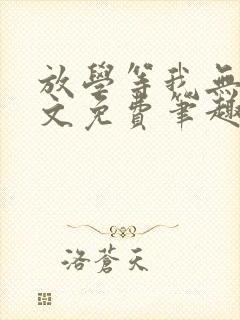 放學等我無
文免費筆趣
洛蒼天